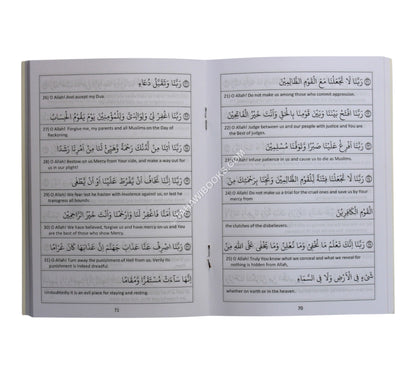 رَبَّنَا لَا تَجْعَلْنَا مَعَ الْقَوْمِ الظَّالِمِيْنَ
21) O Allah! Do not make us among those who commit aggression.
رَبَّنَا افْتَحْ بَيْنَنَا وَبَيْنَ قَوْمِنَا بِالْحَقِّ وَأَنْتَ خَيْرُ الْفَاتِحِيْنَ
22) O Allah! Judge between us and our people with justice and You are
the Best of judges.
رَبَّنَا أَفْرِغْ عَلَيْنَا صَبْرًا وَتَوَفَّنَا مُسْلِمِيْنَ
23) O Allah! Infuse patience in us and cause us to die as Muslims.
رَبَّنَا لَا تَجْعَلْنَا فِتْنَةً لِلْقَوْمِ الظَّالِمِيْنَ وَنَجِّنَا بِرَحْمَتِكَ مِنَ
24) O Allah! Do not make us a trial for the cruel ones and save us by Your
mercy from
الْقَوْمِ الْكَافِرِيْنَ
the clutches of the disbelievers.
رَبَّنَا إِنَّكَ تَعْلَمُ مَا نُخْفِيْ وَمَا نُعْلِنُ وَمَا يَخْفٰى عَلَى اللّٰهِ مِنْ
25) O Allah! Truly You know what we conceal and what we reveal for
nothing is hidden from Allah,
شَيْءٍ فِي الْأَرْضِ وَلَا فِي السَّمَاءِ
whether on earth or in the heaven.
70
رَبَّنَا وَتَقَبَّلْ دُعَاءِ
26) O Allah! And accept my Dua.
رَبَّنَا اغْفِرْ لِيْ وَلِوَالِدَيَّ وَلِلْمُؤْمِنِيْنَ يَوْمَ يَقُوْمُ الْحِسَابُ
27) O Allah! Forgive me, my parents and all Muslims on the Day of
Reckoning.
رَبَّنَا اٰتِنَا مِنْ لَّدُنْكَ رَحْمَةً وَهَيِّئْ لَنَا مِنْ أَمْرِنَا رَشَدًا
28) O Allah! Bestow on us Mercy from Your side, and make a way out for
us in our plight!
رَبَّنَا إِنَّنَا نَخَافُ أَنْ يَفْرُطَ عَلَيْنَا أَوْ أَنْ يَطْغٰى
29) O Allah! We fear lest he hasten with insolence against us, or lest he
transgress all bounds.
رَبَّنَا اٰمَنَّا فَاغْفِرْ لَنَا وَارْحَمْنَا وَأَنْتَ خَيْرُ الرَّاحِمِيْنَ
30) O Allah! We have believed, forgive us and have mercy on us and You are
the best of those who show Mercy.
رَبَّنَا اصْرِفْ عَنَّا عَذَابَ جَهَنَّمَ إِنَّ عَذَابَهَا كَانَ غَرَامًا
31) O Allah! Turn away the punishment of Hell from us. Verily its
punishment is indeed dreadful.
إِنَّهَا سَآءَتْ مُسْتَقَرًّا وَمُقَامًا
Undoubtedly it is an evil place for staying and resting.
71